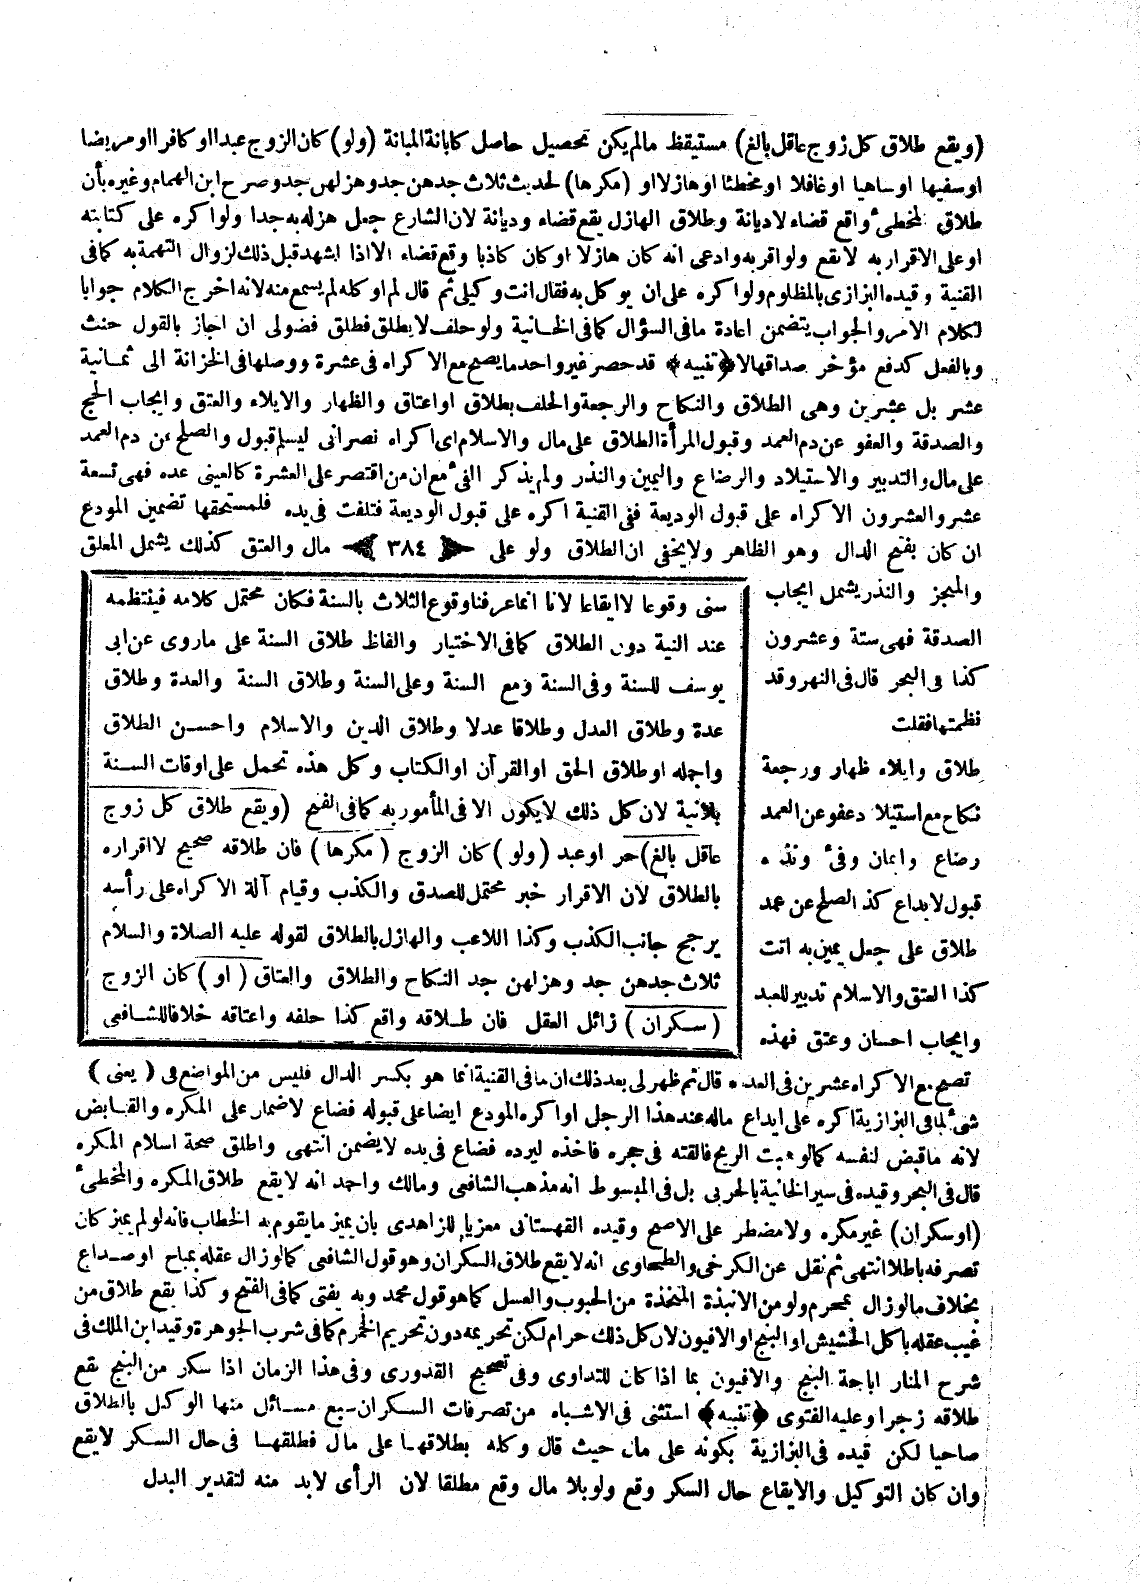 (ويقع طلاق كل زوج عاقل بالغ) مستيقظ مالم يكن تحصيل حاصل كابانة المبانة (ولو) كان الزوج عبدا او كافرا او مريضا
اوسفيها اوساهيا اوغافلا اومخطئا اوهازلا او (مكرها) لحديث ثلاث جدهن جد وهزلهن جد وصرح ابن الهمام وغيره بأن
طلاق المخطئ واقع قضاء لاديانة وطلاق الهازل يقع قضاء وديانة لان الشارع جعل هزله به جدا ولو اكره على كتابته
اوعلى الاقرار به لايقع ولو اقر به وادعى انه كان هازلا اوكان كاذبا وقع قضاء الا اذا اشهد قبل ذلك لزوال التهمة به كمافى
القنية وقيده البزازى بالمظلوم ولو اكره على ان يوكل به فقال انت وكيلى ثم قال لم اوكله لم يسمع منه لانه اخرج الكلام جوابا
لكلام الامر والجواب يتضمن اعادة مافى السؤال كمافى الخانية ولو حلف لايطلق فطلق فضولى ان اجاز بالقول حنث
وبالفعل كدفع مؤخر صداقها لا ﴿تنبيه﴾ قد حصر غير واحد مايصح مع الاكراه فى عشرة ووصلها فى الخزانة الى ثمانية
عشر بل عشرين وهى الطلاق والنكاح والرجعة والحلف بطلاق اواعتاق والظهار والايلاء والعتق وايجاب الحج
والصدقة والعفو عن دم العمد وقبول المرأة الطلاق على مال والاسلام اى اكراه نصرانى ليسلم قبول والصلح عن دم العمد
على مال والتدبير والاستيلاد والرضاع واليمين والنذر ولم يذكر الفئ مع ان من اقتصر على العشرة كالعينى عده فهى تسعة
عشر والعشرون الاكراه على قبول الوديعة ففى القنية اكره على قبول الوديعة فتلفت فى يده فلمستحقها تضمين المودع
ان كان بفتح الدال وهو الظاهر ولايخفى ان الطلاق ولو على ﴿٣٨٤﴾ مال والعتق كذلك يشمل المعلق
والمنجز والنذر يشمل ايجاب
الصدقة فهى ستة وعشرون
كذا فى البحر قال فى النهر وقد
نظمتها فقلت
طلاق وايلاء ظهار ورجعة
نكاح مع استيلاد عفو عن العمد
رضاع وايمان وفئ ونذره
قبول لايداع كذا الصلح عن عمد
طلاق على جعل يمين به اتت
كذا العتق والاسلام تدبير للعبد
وايجاب احسان وعتق فهذه
سنى وقوعا لاايقاعا لانا انما عرفنا وقوع الثلاث بالسنة فكان محتمل كلامه فينتظمه
عند النية دون الطلاق كمافى الاختيار والفاظ طلاق السنة على ماروى عن ابى
يوسف للسنة وفى السنة ومع السنة وعلى السنة وطلاق السنة والعدة وطلاق
عدة وطلاق العدل وطلاقا عدلا وطلاق الدين والاسلام واحسن الطلاق
واجمله اوطلاق الحق اوالقرآن اوالكتاب وكل هذه تحمل على اوقات السنة
بلانية لان كل ذلك لايكون الا فى المأمور به كمافى الفتح (ويقع طلاق كل زوج
عاقل بالغ) حر اوعبد (ولو) كان الزوج (مكرها) فان طلاقه صحيح لااقراره
بالطلاق لان الاقرار خبر محتمل للصدق والكذب وقيام آلة الاكراه على رأسه
يرجح جانب الكذب وكذا اللاعب والهازل بالطلاق لقوله عليه الصلاة والسلام
ثلاث جدهن جد وهزلهن جد النكاح والطلاق والعتاق (او) كان الزوج
(سكران) زائل العقل فان طلاقه واقع كذا حلفه واعتاقه خلافا للشافعى
تصح مع الاكراه عشرين فى العدد قال ثم ظهر لى بعد ذلك ان مافى القنية انما هو بكسر الدال فليس من المواضع فى (يعنى)
شئ لمافى البزازية اكره على ايداع ماله عند هذا الرجل او اكره المودع ايضا على قبوله فضاع لاضمار على المكره والقابض
لانه ماقبض لنفسه كمالو هبت الريح فالقته فى حجره فاخذه ليرده فضاع فى يده لايضمن انتهى واطلق صحة اسلام المكره
قال فى البحر وقيده فى سير الخانية بالحربى بل فى المبسوط انه مذهب الشافعى ومالك واحمد انه لايقع طلاق المكره والمخطئ
(اوسكران) غير مكره ولامضطر على الاصح وقيده القهستانى معزيا للزاهدى بان يميز مايقوم به الخطاب فانه لو لم يميز كان
تصرفه باطلا انتهى ثم نقل عن الكرخى والطحاوى انه لايقع طلاق السكران وهو قول الشافعى كمالو زال عقله بمباح اوصداع
بخلاف مالو زال بمحرم ولو من الانبذة المتخذة من الحبوب والعسل كماهو قول محمد وبه يفتى كمافى الفتح وكذا يقع طلاق من
غيب عقله باكل الحشيش او البنج او الافيون لان كل ذلك حرام لكن تحريمه دون تحريم الخمر كمافى شرب الجوهرة وقيد ابن الملك فى
شرح المنار اباحة البنج والافيون بما اذا كان للتداوى وفى تصحيح القدورى وفى هذا الزمان اذا سكر من البنج يقع
طلاقه زجرا وعليه الفتوى ﴿تنبيه﴾ استثنى فى الاشباه من تصرفات السكران سبع مسائل منها الوكيل بالطلاق
صاحيا لكن قيده فى البزازية بكونه على مال حيث قال وكله بطلاقها على مال فطلقها فى حال السكر لايقع
وان كان التوكيل والايقاع حال السكر وقع ولو بلا مال وقع مطلقا لان الرأى لابد منه لتقدير البدل